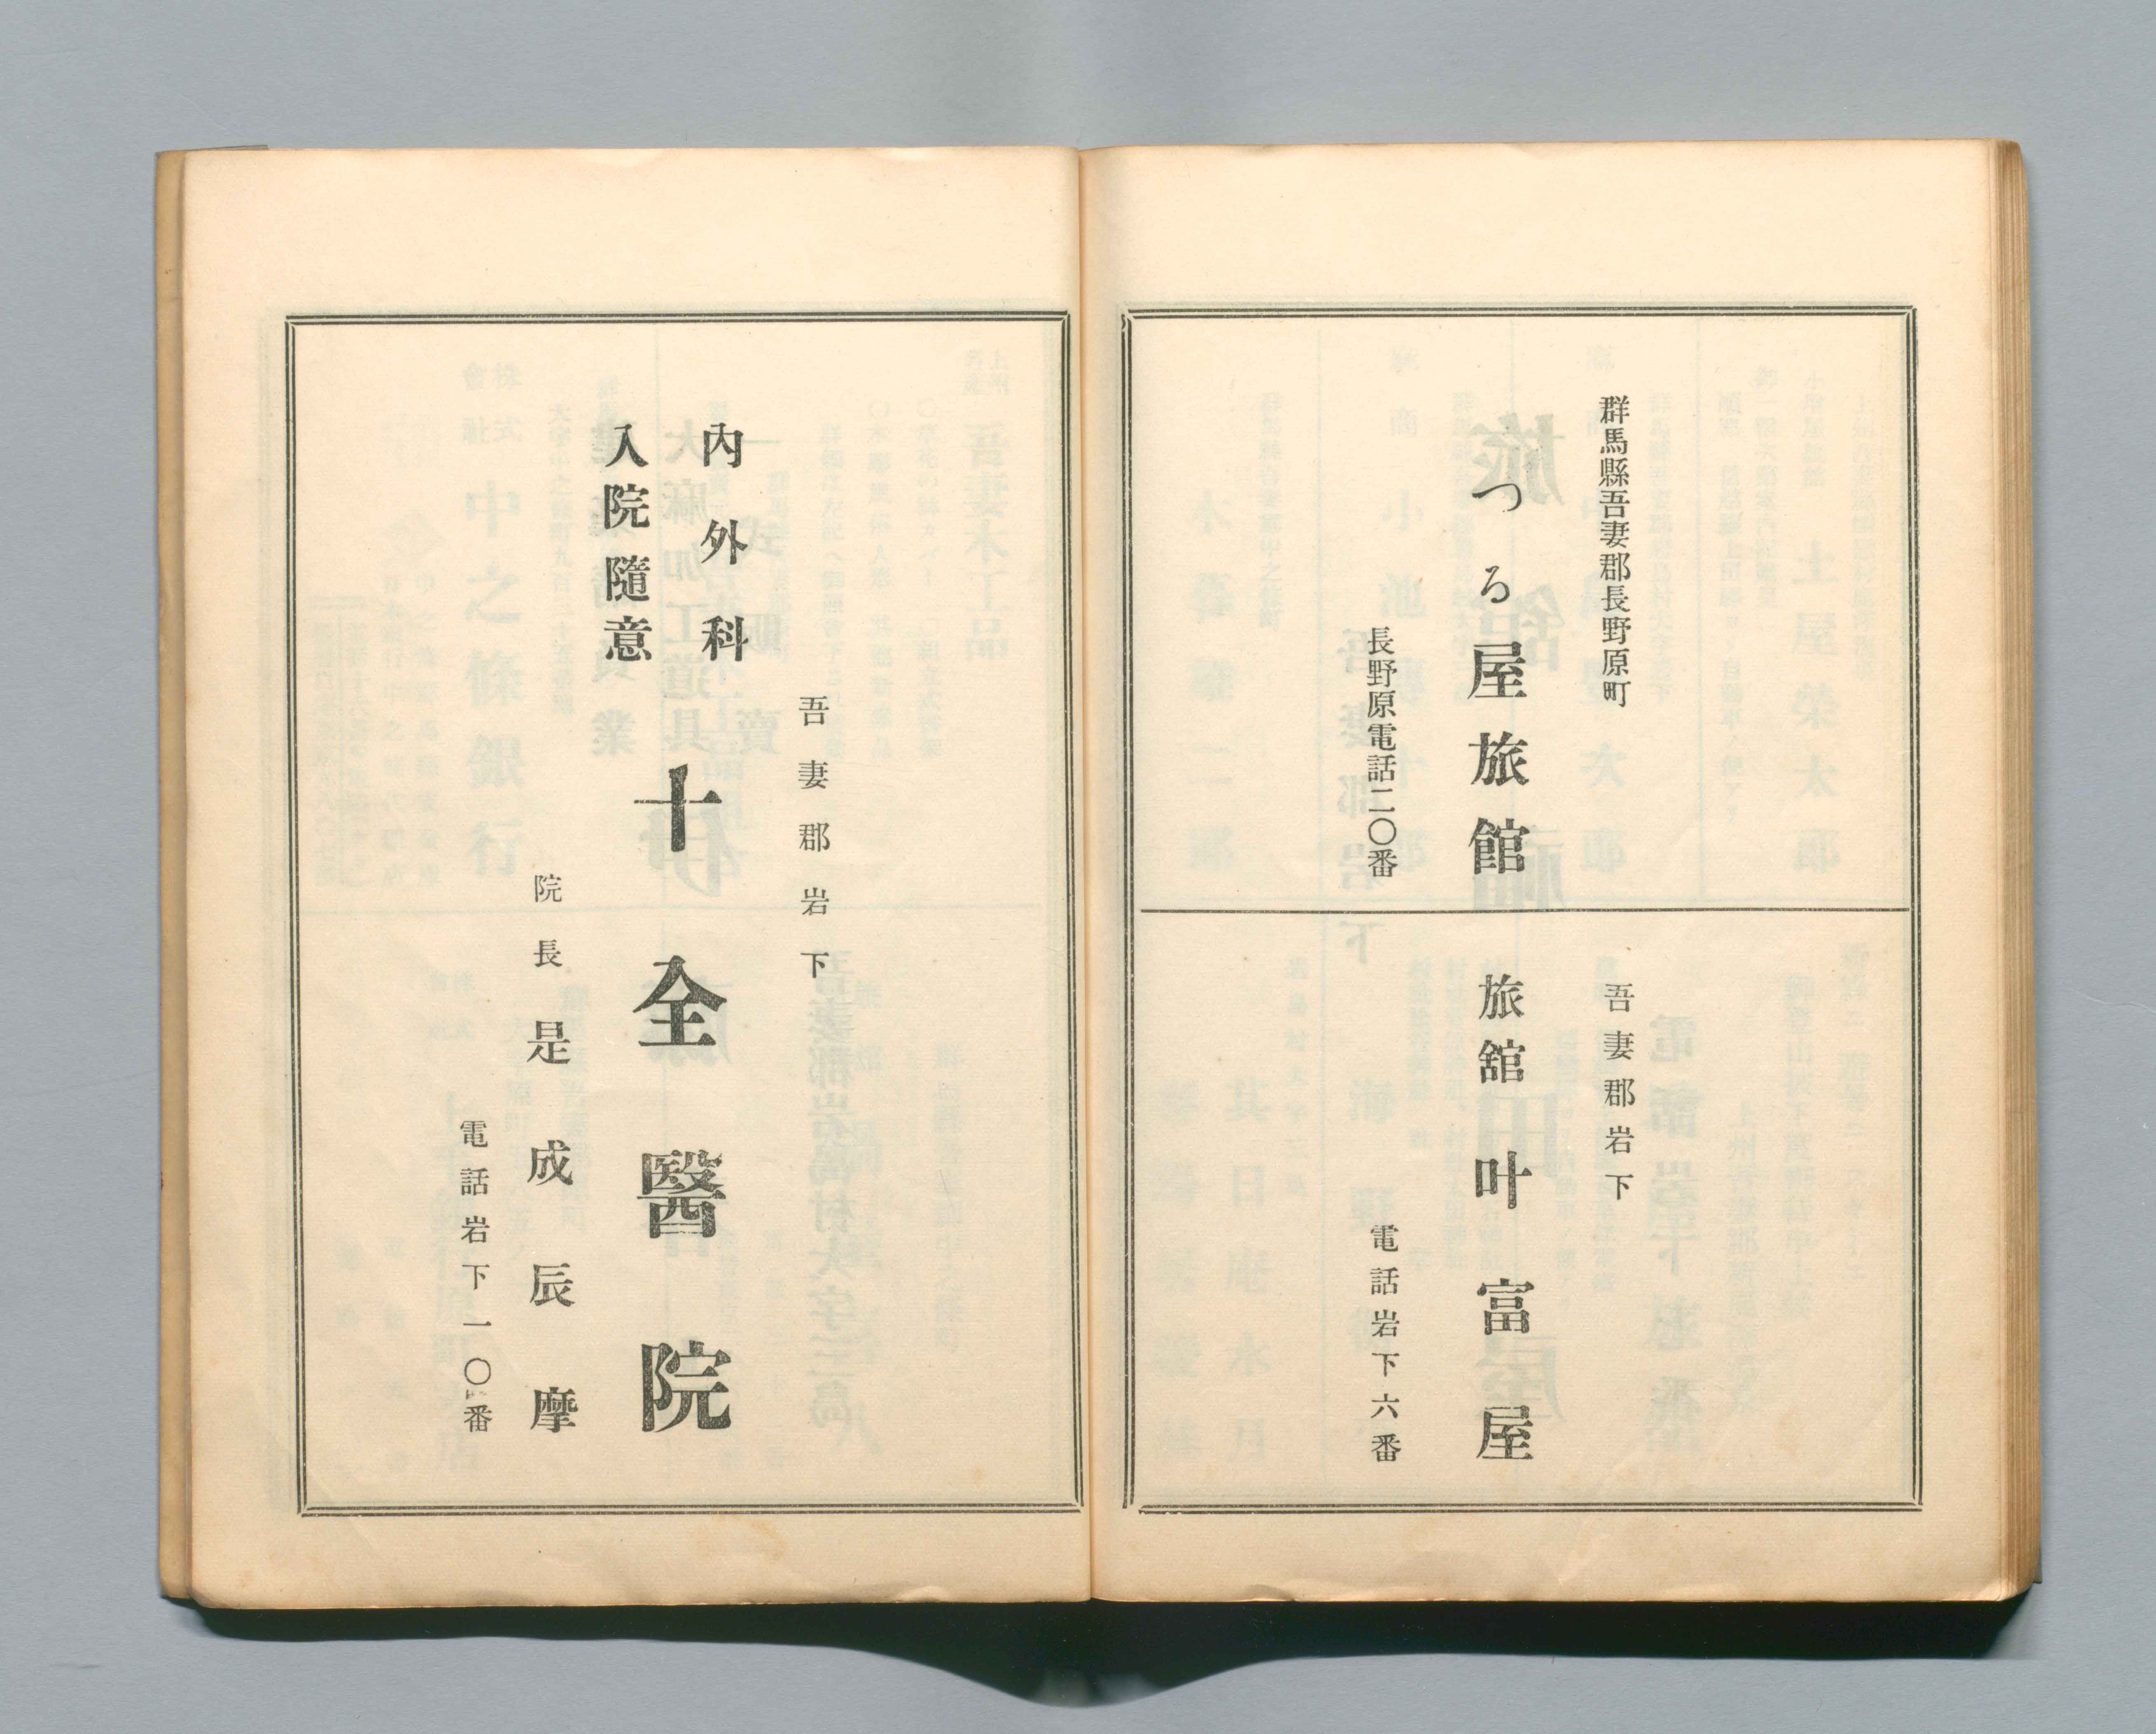 群馬縣吾妻郡長野原町
つる屋旅館
長野原電話二〇番
吾妻郡岩下
旅舘叶富屋
電話岩下六番
吾妻郡岩下
內外科
十全醫院
入院隨意
院長是成辰摩
電話岩下一〇番